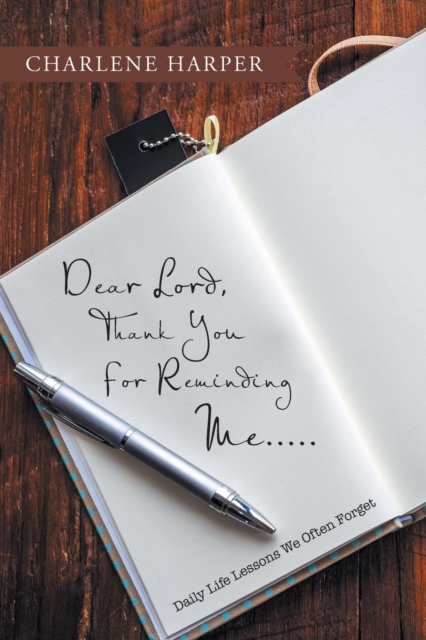 CHARLENE HARPER
Dear Lord,
Thank You
For Reminding
Me.....
Daily Life Lessons We Often Forget